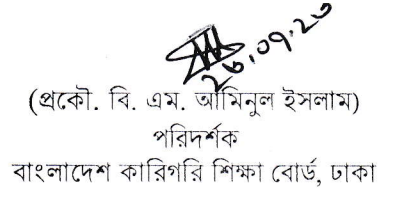 ২৬.০৭.২৩
(প্রকৌ. বি. এম. আমিনুল ইসলাম)
পরিদর্শক
বাংলাদেশ কারিগরি শিক্ষা বোর্ড, ঢাকা